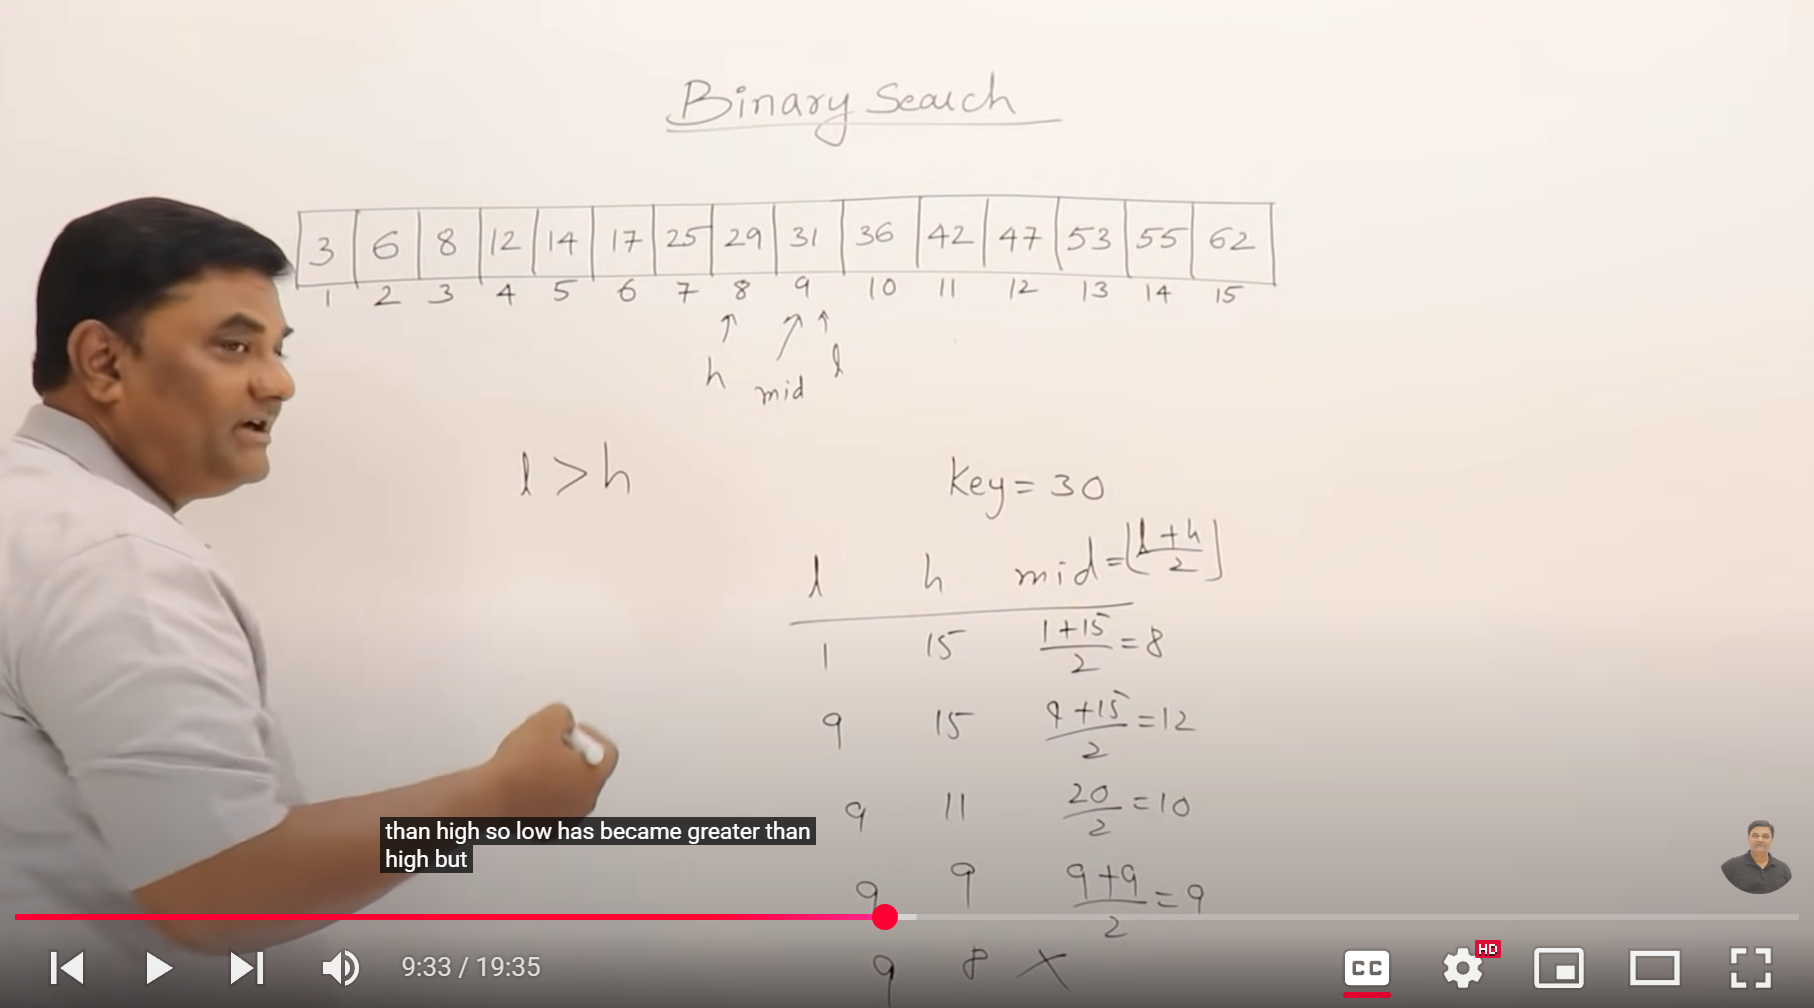 Binary Search
3 6 8 12 14 17 25 29 31 36 42 47 53 55 62
1 2 3 4 5 6 7 8 9 10 11 12 13 14 15
h mid l
l > h
Key = 30
l h mid = ⌊(l+h)/2⌋
1 15 (1+15)/2 = 8
9 15 (9+15)/2 = 12
9 11 20/2 = 10
9 9 (9+9)/2 = 9
9 8 ×
than high so low has became greater than
high but
9:33 / 19:35
CC
HD